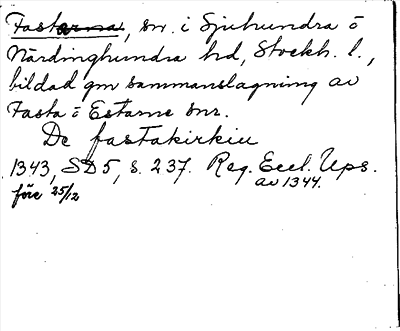 Fasterna, sn. i Sjuhundra o
Närdinghundra hd, Stockh. l.,
bildad gm sammanslagning av
Fasta o Esterne snr.
De fastakirkiu
1343, SD 5, s. 237. Reg. Eccl. Ups.
före 25/12 av 1344.